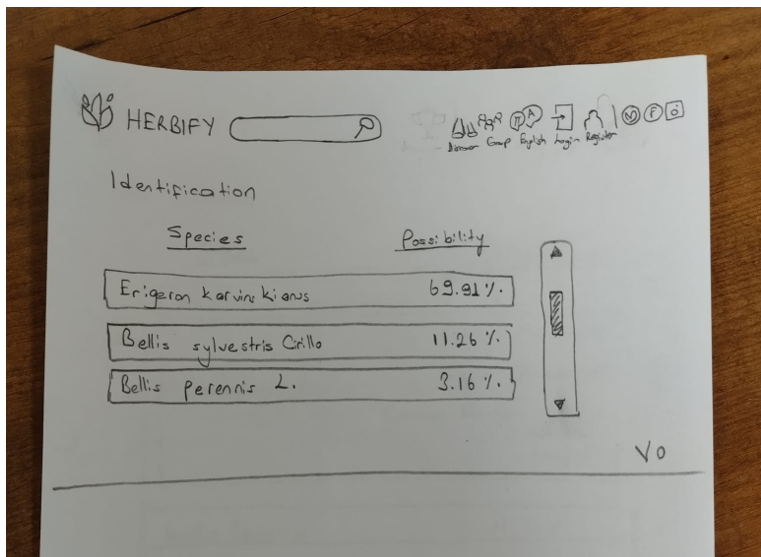 HERBIFY
Discover Group English Login Register
Identification
Species Possibility
Erigeron karvinskianus 69.91%
Bellis sylvestris Cirillo 11.26%
Bellis perennis L. 3.16%
VO